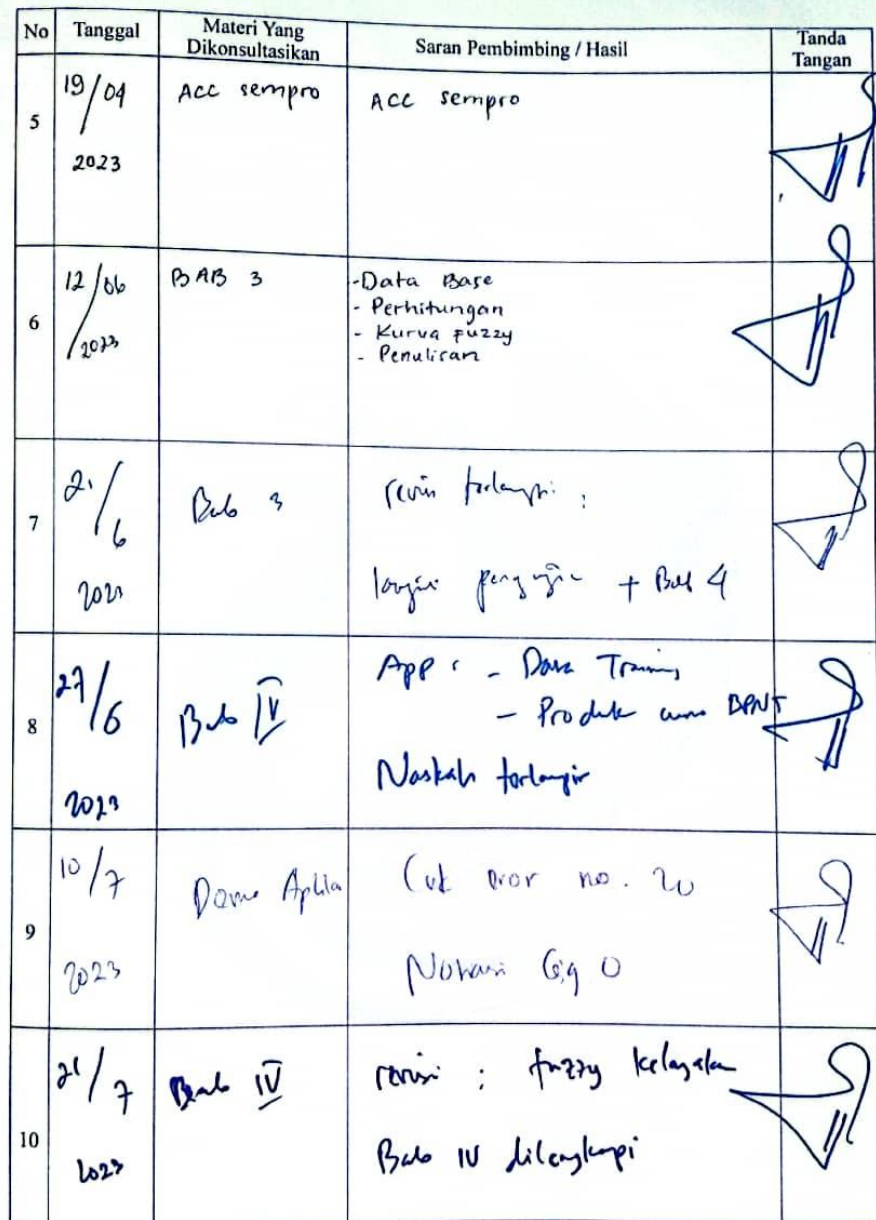 No Tanggal Materi Yang Dikonsultasikan Saran Pembimbing / Hasil Tanda Tangan
5 19/04 2023 ACC sempro ACC sempro
6 12/06/2023 BAB 3 -Data Base
- Perhitungan
- Kurva Fuzzy
- Penulisan
7 21/6 2023 Bab 3 revisi terlampir :
+ Bab 4
8 27/6 2023 Bab IV App : - Data Training
- Produk BPNT
Naskah terlampir
9 10/7 2023 Demo Cek error no. 20
Notasi Big O
10 21/7 2023 Bab IV revisi : fuzzy kelayakan
Bab IV dilengkapi